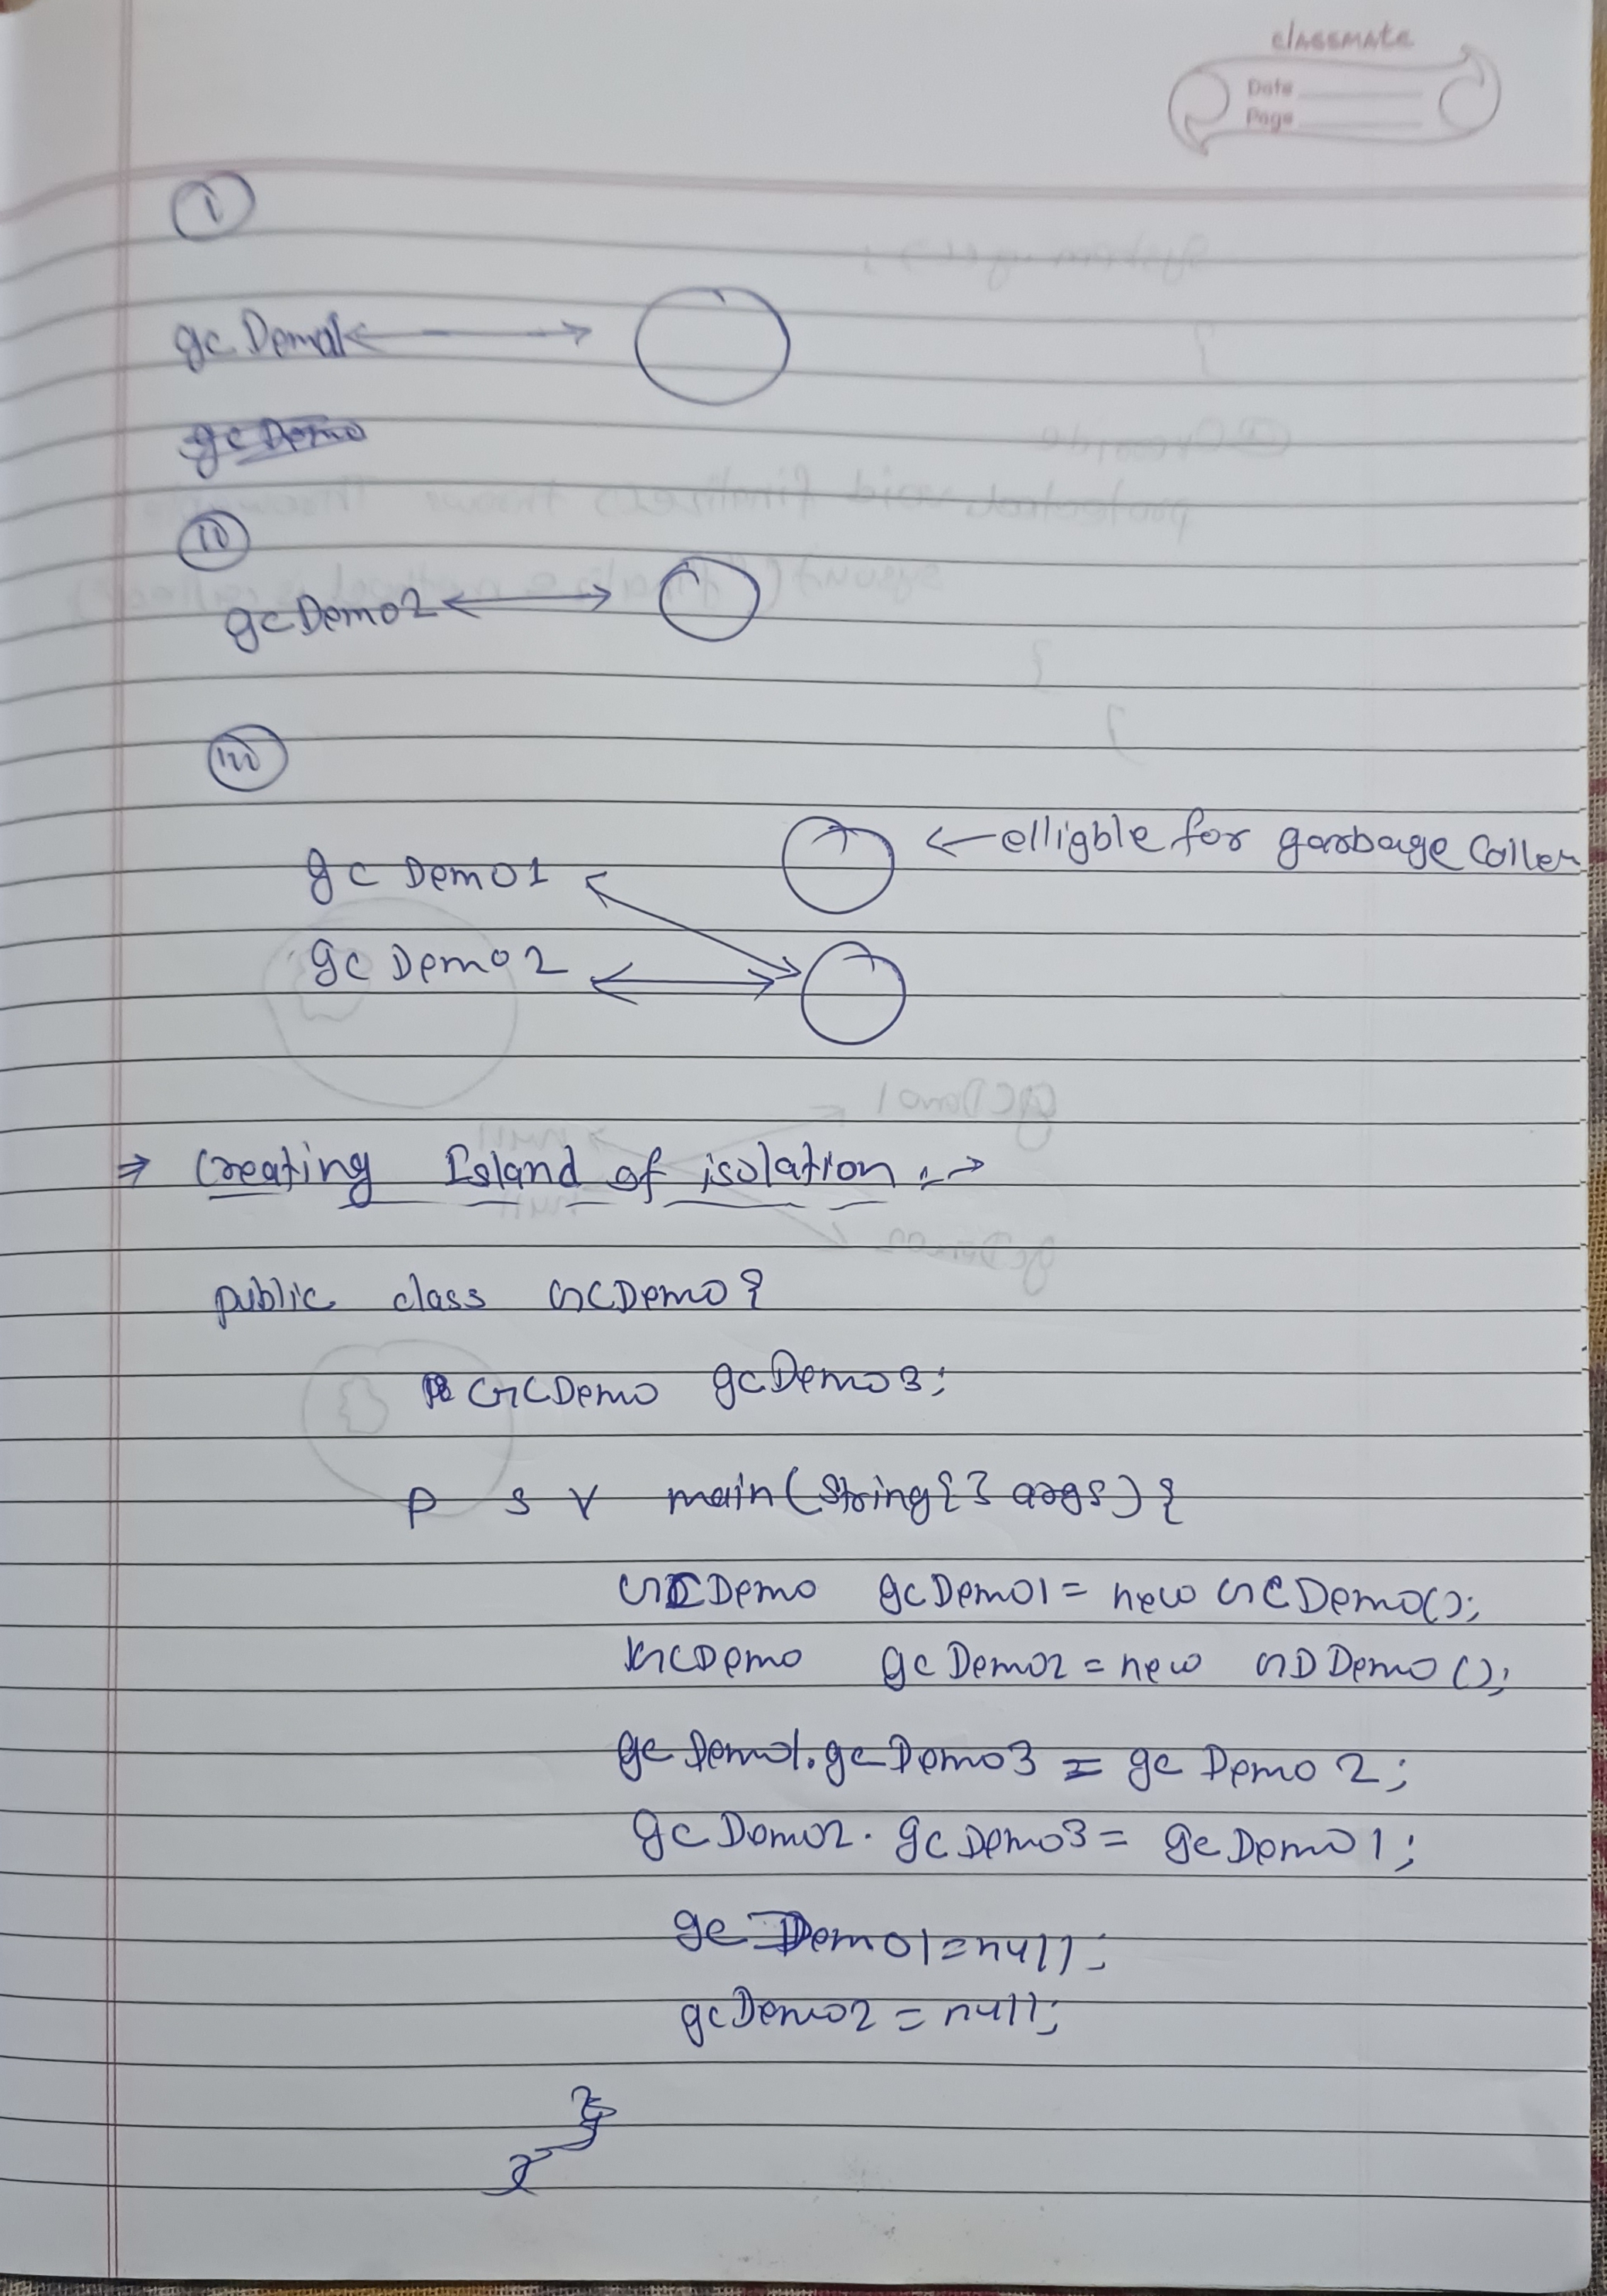 classmate
Date
Page
i
gcDemo1
gcDemo
ii
gcDemo2
iii
gc Demo1
← elligble for garbage Coller
gc Demo2
⇒ Creating Island of isolation :->
public class GCDemo {
GCDemo gcDemo3;
p s v main(String{} args) {
GCDemo gcDemo1 = new GCDemo();
GCDemo gcDemo2 = new GDDemo();
gcDemo1.gcDemo3 = gcDemo2;
gcDemo2.gcDemo3 = gcDemo1;
gcDemo1 = null;
gcDemo2 = null;
}
}